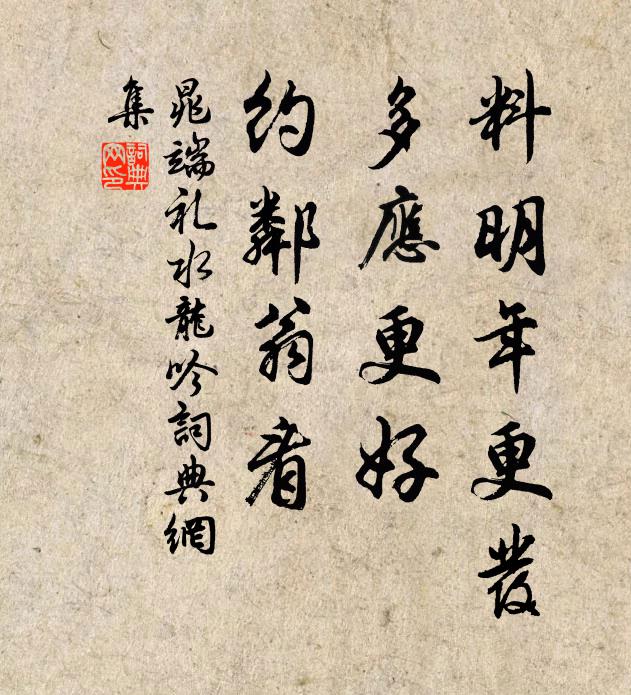 料明年更發
多應更好
約鄰翁看
晁端礼水龍吟詞典網
集
詞典網印